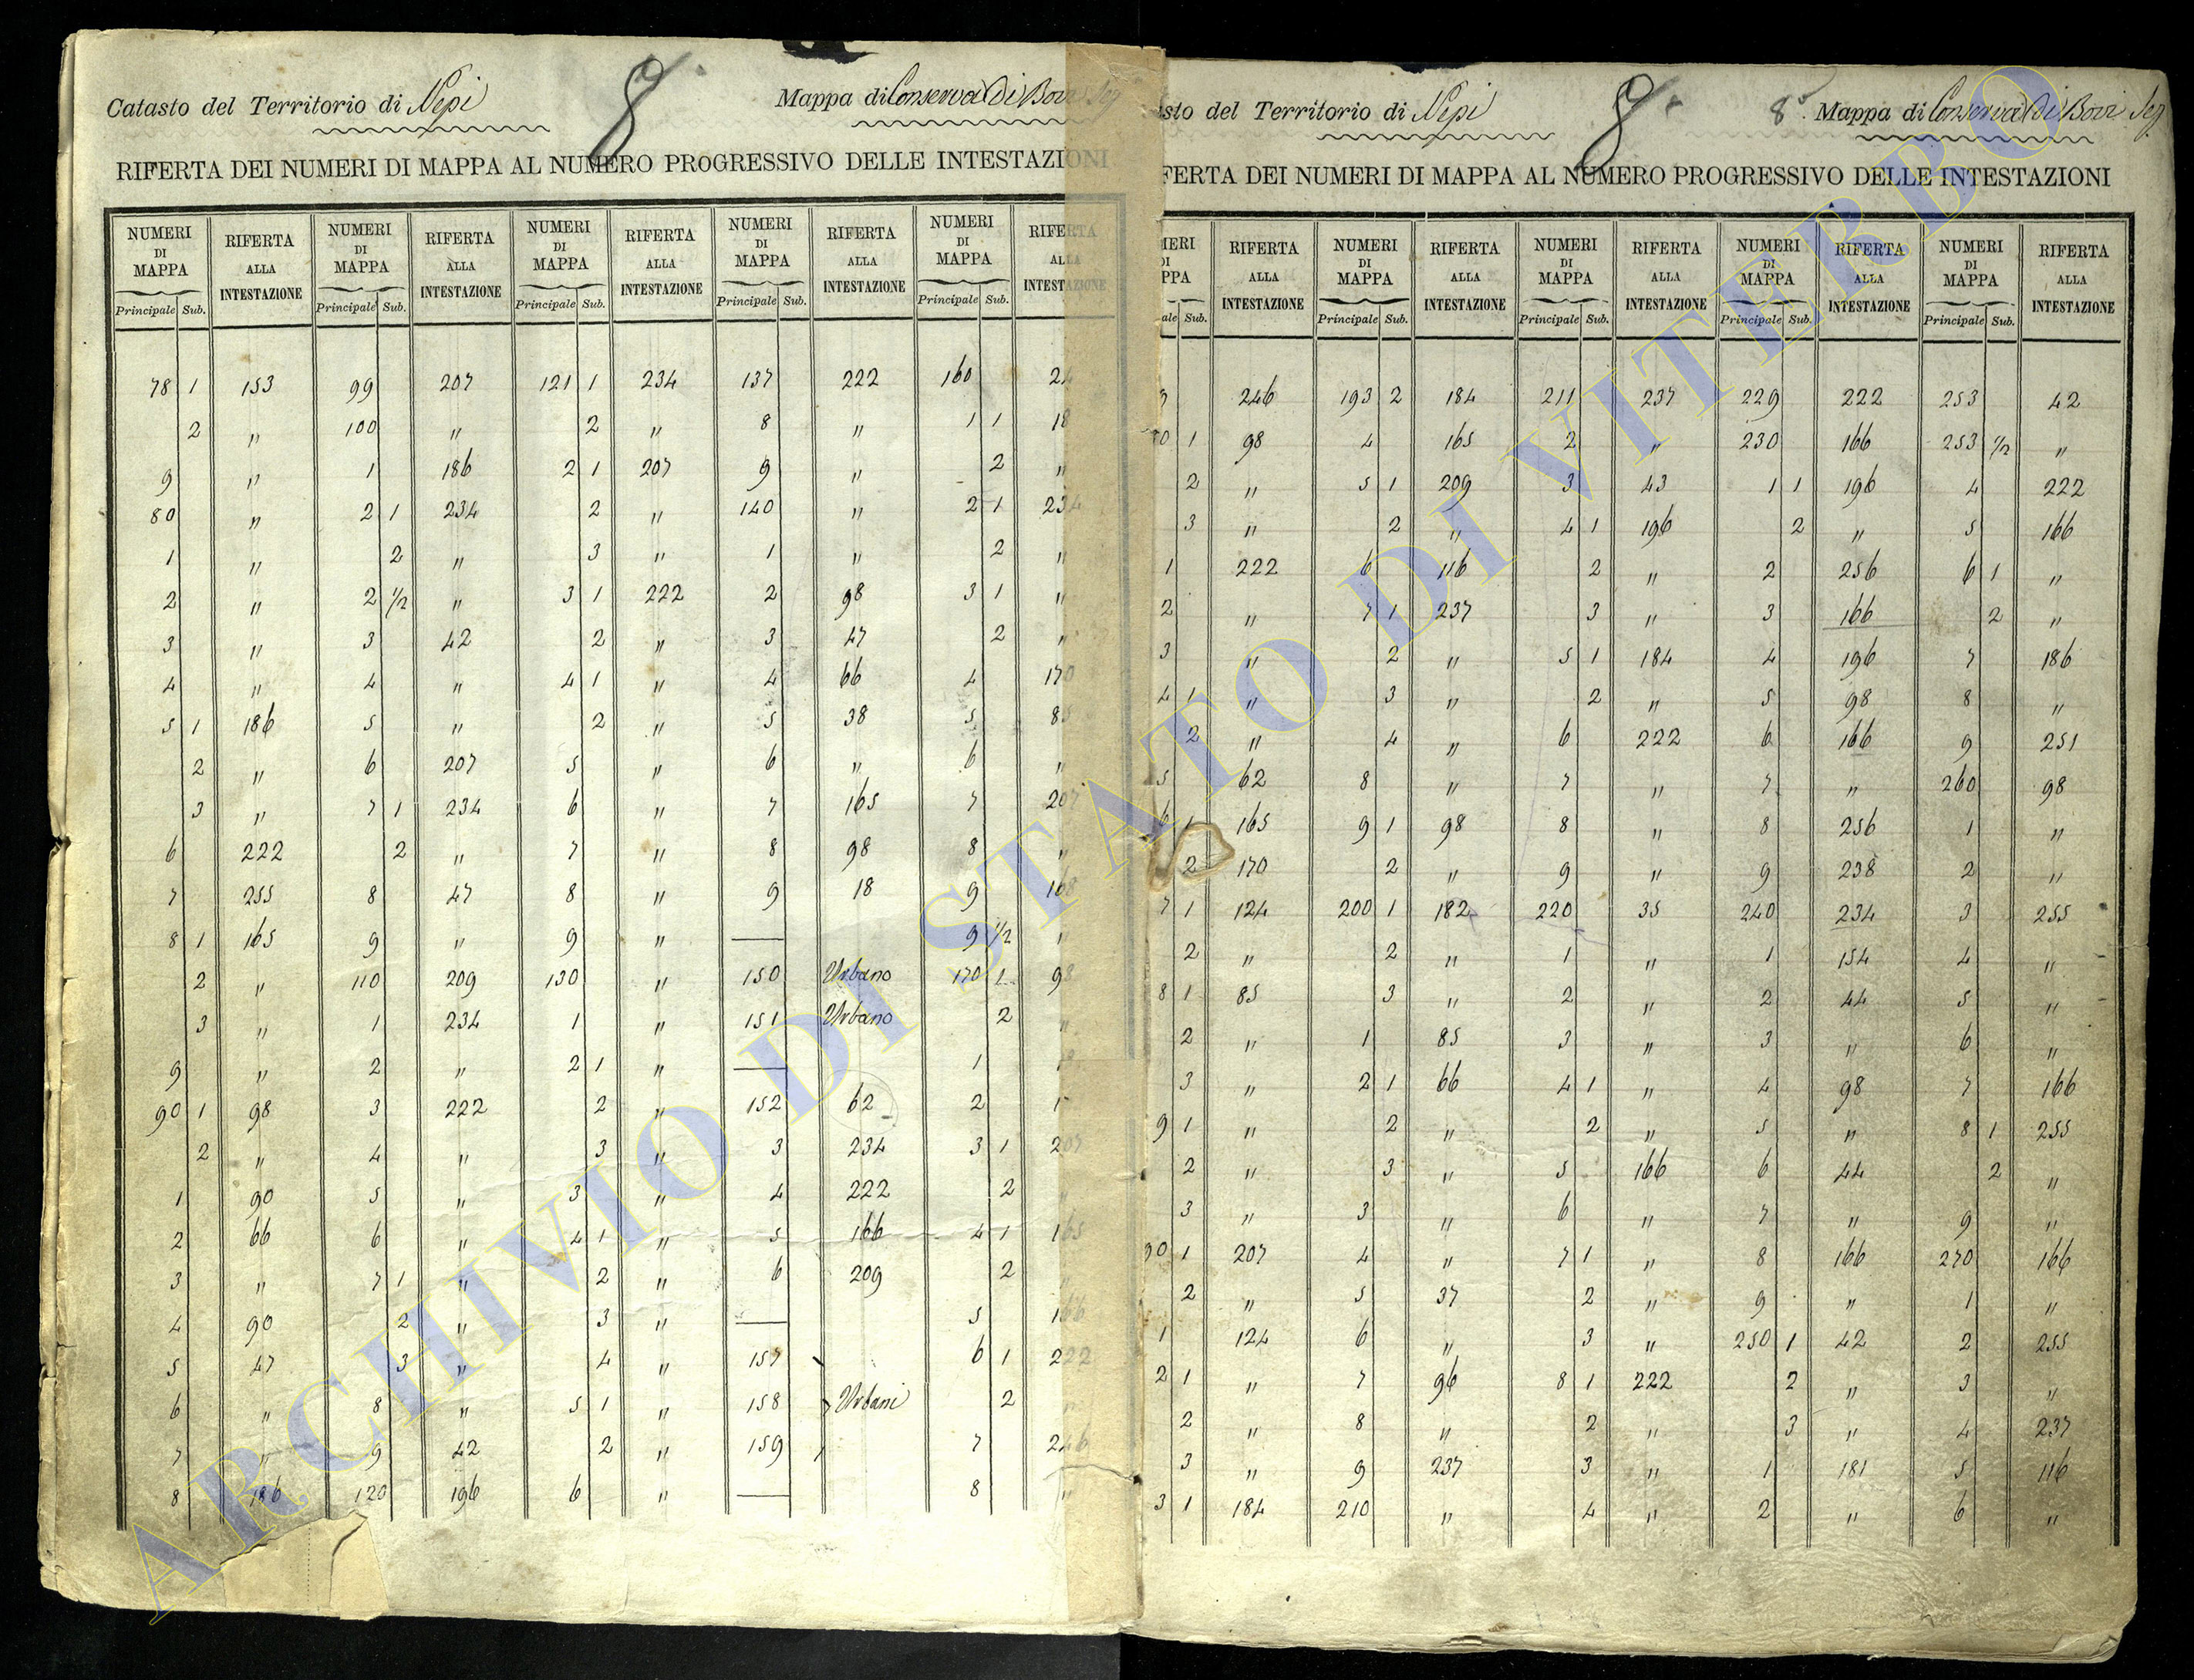 Catasto del Territorio di Nepi 8. Mappa di Conserva Di Bovi Seg
RIFERTA DEI NUMERI DI MAPPA AL NUMERO PROGRESSIVO DELLE INTESTAZIONI
NUMERI DI MAPPA RIFERTA ALLA INTESTAZIONE NUMERI DI MAPPA RIFERTA ALLA INTESTAZIONE NUMERI DI MAPPA RIFERTA ALLA INTESTAZIONE NUMERI DI MAPPA RIFERTA ALLA INTESTAZIONE NUMERI DI MAPPA RIFERTA ALLA INTESTAZIONE
Principale Sub. Principale Sub. Principale Sub. Principale Sub. Principale Sub.
78 1 153 99 207 121 1 234 137 222 160 24
2 " 100 " 2 " 8 " 1 1 18
9 " 1 186 2 1 207 9 " 2 "
80 " 2 1 234 2 " 140 " 2 1 234
1 " 2 " 3 " 1 " 2 "
2 " 2 1/2 " 3 1 222 2 98 3 1 "
3 " 3 42 2 " 3 47 2 "
4 " 4 " 4 1 " 4 66 4 170
5 1 186 5 " 2 " 5 38 5 85
2 " 6 207 5 " 6 " 6 "
3 " 7 1 234 6 " 7 165 7 207
6 222 2 " 7 " 8 98 8 "
7 255 8 47 8 " 9 18 9 168
8 1 165 9 " 9 " 9 1/2 "
2 " 110 209 130 " 150 Urbano 170 1 98
3 " 1 234 1 " 151 Urbano 2 "
9 " 2 " 2 1 " 1
90 1 98 3 222 2 " 152 62 2
2 " 4 " 3 " 3 234 3 1 207
1 90 5 " 3 " 4 222 2 "
2 66 6 " 4 1 " 5 166 4 1 165
3 " 7 1 " 2 " 6 209 2
4 90 2 " 3 " 5 166
5 47 3 " 4 " 157 6 1 222
6 " 8 " 5 1 " 158 Urbani 2 "
7 " 9 42 2 " 159 7 246
8 186 120 196 6 " 8 "
asto del Territorio di Nepi 8. 8° Mappa di Conserva Di Bovi Seg
FERTA DEI NUMERI DI MAPPA AL NUMERO PROGRESSIVO DELLE INTESTAZIONI
MERI DI PPA RIFERTA ALLA INTESTAZIONE NUMERI DI MAPPA RIFERTA ALLA INTESTAZIONE NUMERI DI MAPPA RIFERTA ALLA INTESTAZIONE NUMERI DI MAPPA RIFERTA ALLA INTESTAZIONE NUMERI DI MAPPA RIFERTA ALLA INTESTAZIONE
ale Sub. Principale Sub. Principale Sub. Principale Sub. Principale Sub.
9 246 193 2 184 211 237 229 222 253 42
0 1 98 4 165 2 " 230 166 253 1/2 "
2 " 5 1 209 3 43 1 1 196 4 222
3 " 2 " 4 1 196 2 " 5 166
1 222 6 116 2 " 2 256 6 1 "
2 " 7 1 237 3 " 3 166 2 "
3 " 2 " 5 1 184 4 196 7 186
4 1 " 3 " 2 " 5 98 8 "
2 " 4 " 6 222 6 166 9 251
5 62 8 " 7 " 7 " 260 98
6 1 165 9 1 98 8 " 8 256 1 "
2 170 2 " 9 " 9 238 2 "
7 1 124 200 1 182 220 35 240 234 3 255
2 " 2 " 1 " 1 154 4 "
8 1 85 3 " 2 " 2 44 5 "
2 " 1 85 3 " 3 " 6 "
3 " 2 1 66 4 1 " 4 98 7 166
9 1 " 2 " 2 " 5 " 8 1 255
2 " 3 " 5 166 6 44 2 "
3 " 3 " 6 " 7 " 9 "
90 1 207 4 " 7 1 " 8 166 270 166
2 " 5 37 2 " 9 " 1 "
1 124 6 " 3 " 250 1 42 2 255
2 1 " 7 96 8 1 222 2 " 3 "
2 " 8 " 2 " 3 " 4 237
3 " 9 237 3 " 1 181 5 116
3 1 184 210 " 4 " 2 " 6 "
ARCHIVIO DI STATO DI VITERBO